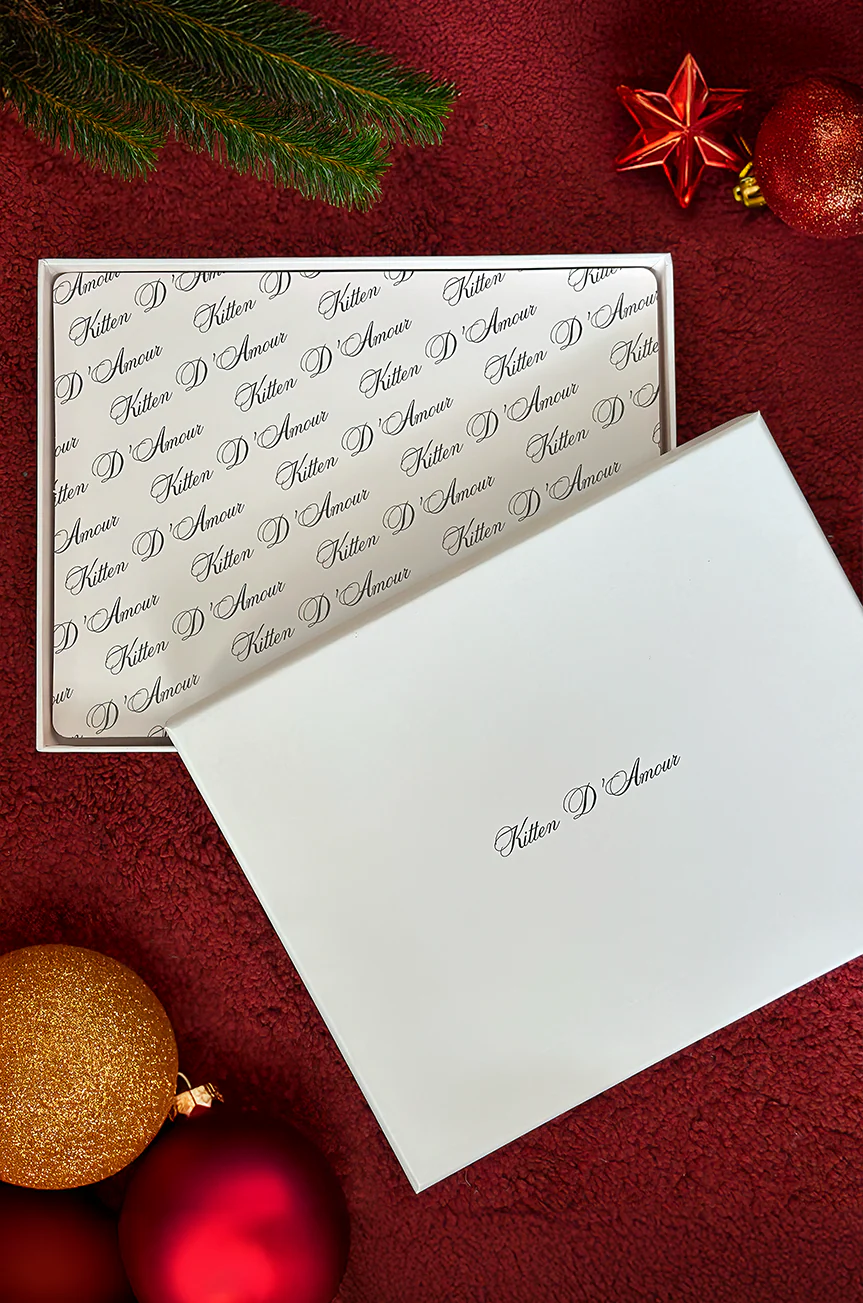 Amour
Kitten D 'Am
Kitten D
Kitten D
Kitten
Kitten
D 'Amour
Kitten D 'Amour
Kitten D 'Amour
Kitten D 'Amour
Kitten D 'Amour
Kitte
our
tten D 'Amour
Kitten D 'Amour
Kitten D 'Amour
Kitten D 'Amour
Kitten D
Amour
Kitten D 'Amour
Kitten D 'Amour
Kitten D 'Amour
Kitten D 'Amour
D 'Amour
Kitten D 'Amour
Kitten D 'Amour
our
D 'Amour
Kitten D 'Amour